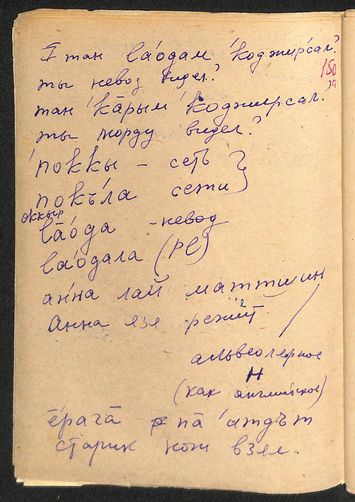 I тан ва́одам 'коджирсал?
ты невод видел?
150
тан 'ка̄рым коджирсал?
ты морду видел?
'поккы – сеть }
покъла сети
оккыр
ва̄́ода – невод
ва́одала (pl)
анна лай маттшин
Анна язя режит
альвеолярное
н
(как английское)
е̄рага̄ па̄ иттдът
старик нож взял.